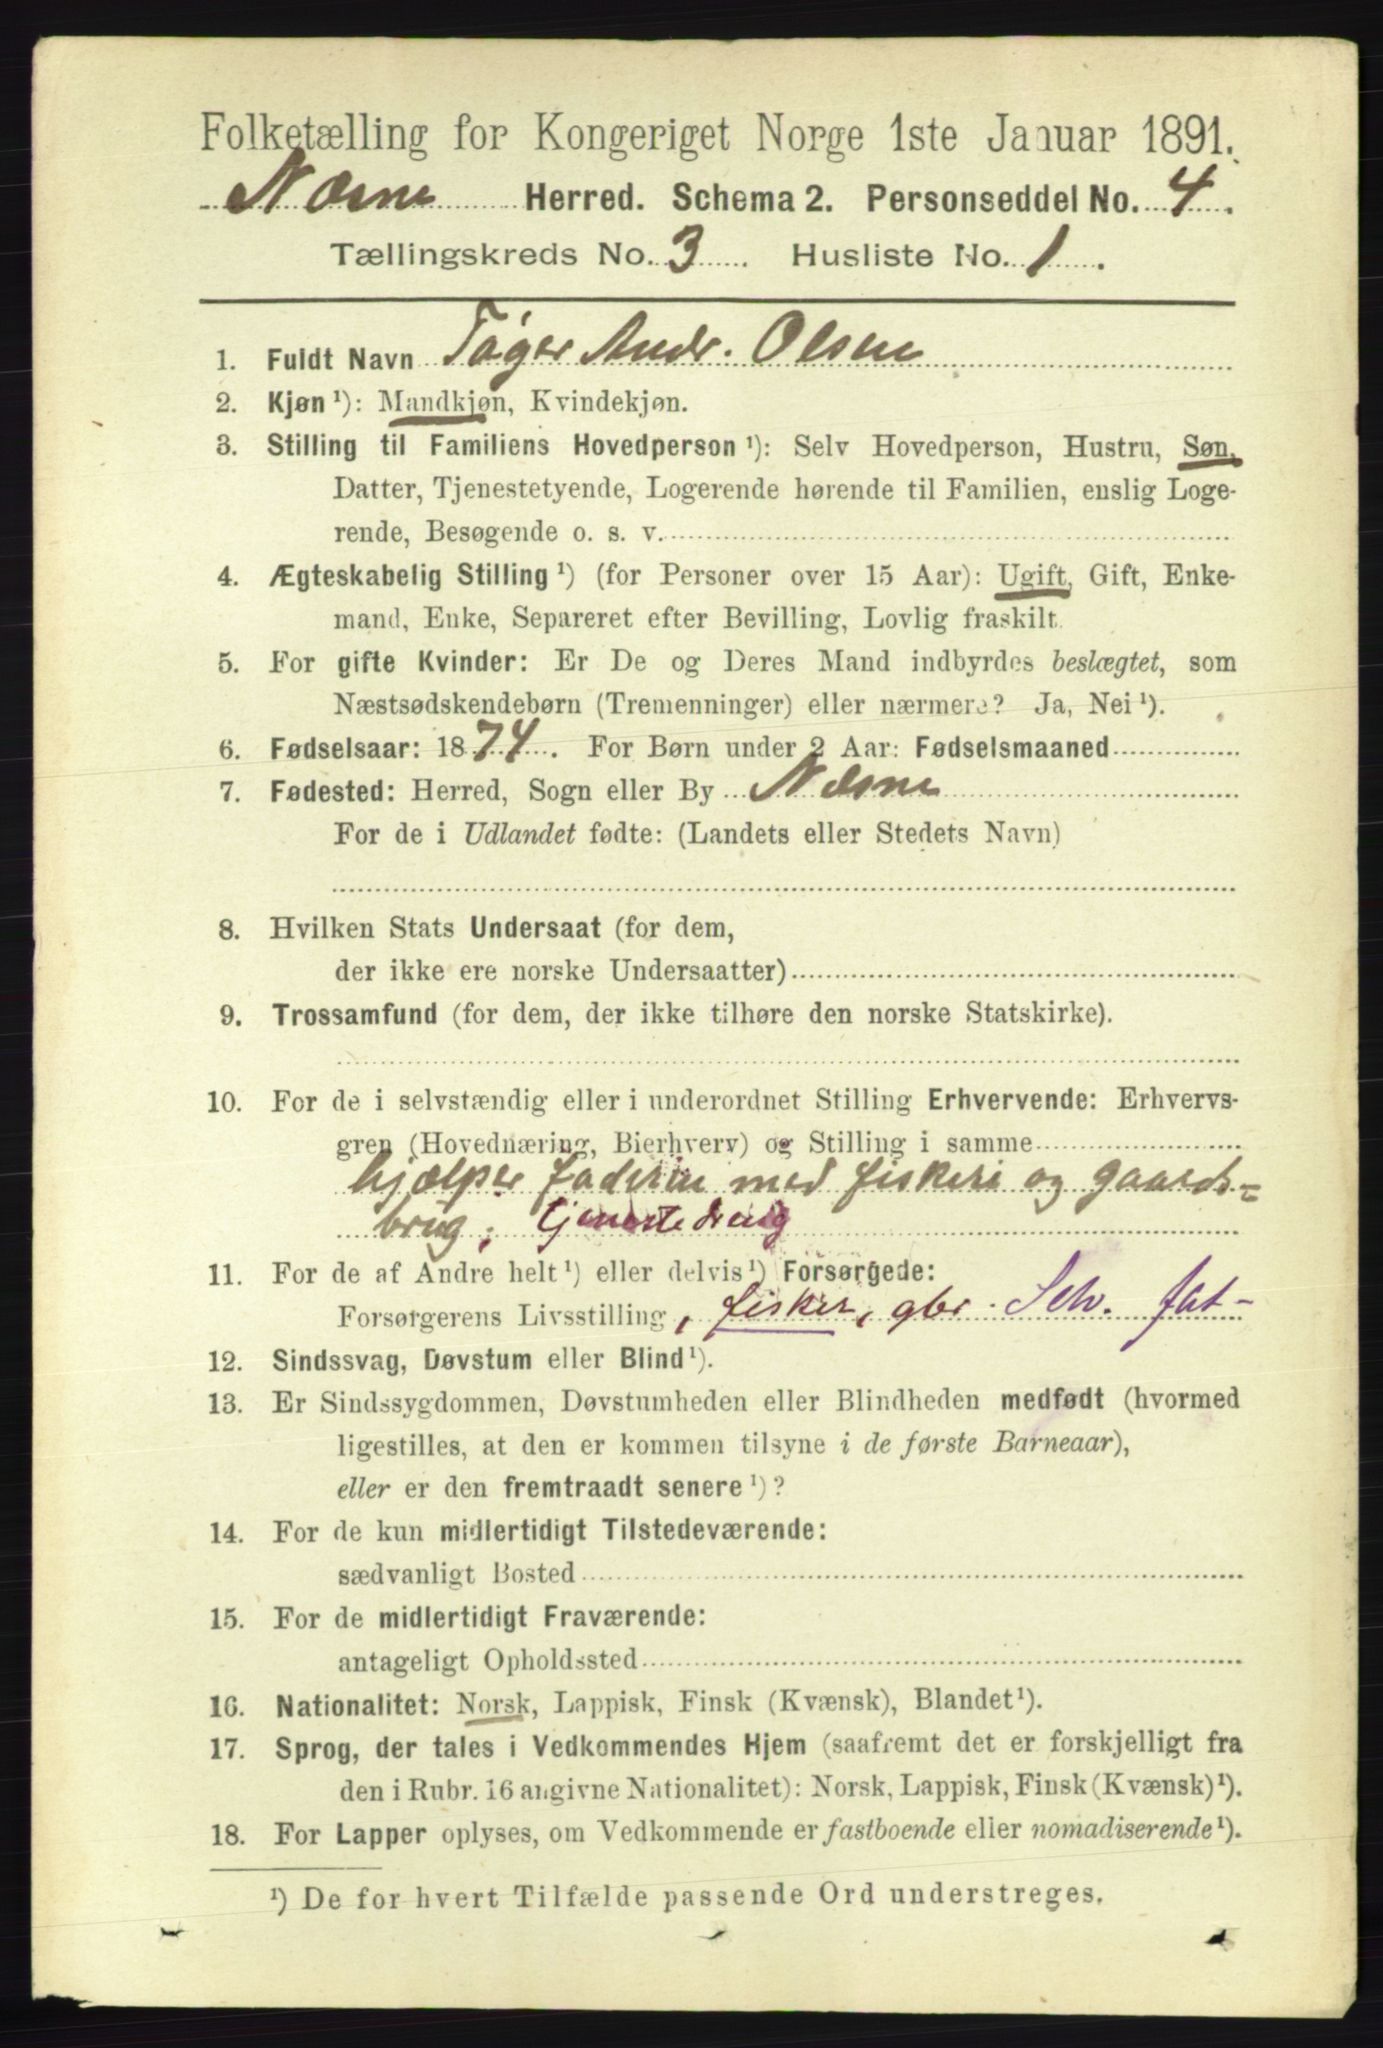 Folketælling for Kongeriget Norge 1ste Januar 1891.
Næsne Herred. Schema 2. Personseddel No. 4.
Tællingskreds No. 3. Husliste No. 1.
1. Fuldt Navn Tóger Andr. Olsen
2. Kjøn ¹): Mandkjøn, Kvindekjøn.
3. Stilling til Familiens Hovedperson ¹): Selv Hovedperson, Hustru, Søn,
Datter, Tjenestetyende, Logerende hørende til Familien, enslig Loge-
rende, Besøgende o. s. v.
4. Ægteskabelig Stilling ¹) (for Personer over 15 Aar): Ugift, Gift, Enke-
mand, Enke, Separeret efter Bevilling, Lovlig fraskilt.
5. For gifte Kvinder: Er De og Deres Mand indbyrdes beslægtet, som
Næstsødskendebørn (Tremenninger) eller nærmere? Ja, Nei ¹).
6. Fødselsaar: 1874. For Børn under 2 Aar: Fødselsmaaned
7. Fødested: Herred, Sogn eller By Næsne
For de i Udlandet fødte: (Landets eller Stedets Navn)
8. Hvilken Stats Undersaat (for dem,
der ikke ere norske Undersaatter)
9. Trossamfund (for dem, der ikke tilhøre den norske Statskirke).
10. For de i selvstændig eller i underordnet Stilling Erhvervende: Erhvervs-
gren (Hovednæring, Bierhverv) og Stilling i samme
hjælper faderen med fiskeri og gaards-
brug; tjenestedreng
11. For de af Andre helt ¹) eller delvis ¹) Forsørgede:
Forsørgerens Livsstilling, fisker, gbr. Selv. fat-
12. Sindssvag, Døvstum eller Blind ¹).
13. Er Sindssygdommen, Døvstumheden eller Blindheden medfødt (hvormed
ligestilles, at den er kommen tilsyne i de første Barneaar),
eller er den fremtraadt senere ¹)?
14. For de kun midlertidigt Tilstedeværende:
sædvanligt Bosted
15. For de midlertidigt Fraværende:
antageligt Opholdssted
16. Nationalitet: Norsk, Lappisk, Finsk (Kvænsk), Blandet ¹).
17. Sprog, der tales i Vedkommendes Hjem (saafremt det er forskjelligt fra
den i Rubr. 16 angivne Nationalitet): Norsk, Lappisk, Finsk (Kvænsk) ¹).
18. For Lapper oplyses, om Vedkommende er fastboende eller nomadiserende ¹).
¹) De for hvert Tilfælde passende Ord understreges.